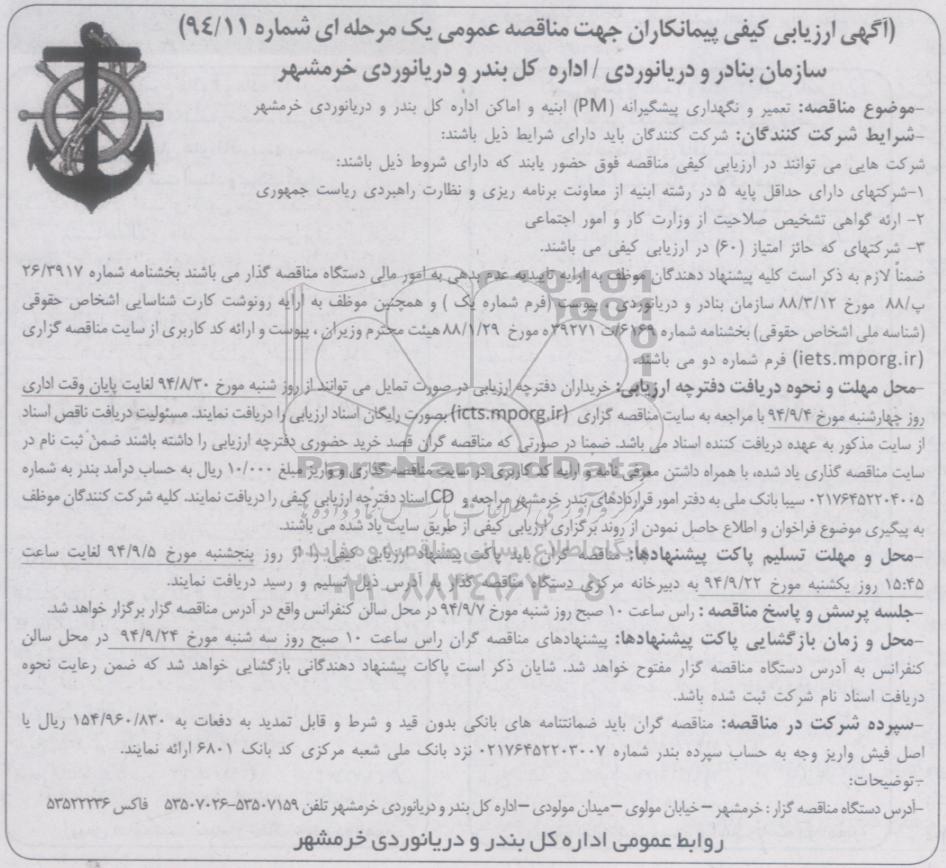 (آگهی ارزیابی کیفی پیمانکاران جهت مناقصه عمومی یک مرحله ای شماره ۹۴/۱۱)
سازمان بنادر و دریانوردی / اداره کل بندر و دریانوردی خرمشهر
-موضوع مناقصه: تعمیر و نگهداری پیشگیرانه (PM) ابنیه و اماکن اداره کل بندر و دریانوردی خرمشهر
-شرایط شرکت کنندگان: شرکت کنندگان باید دارای شرایط ذیل باشند:
شرکت هایی می توانند در ارزیابی کیفی مناقصه فوق حضور یابند که دارای شروط ذیل باشند:
۱-شرکتهای دارای حداقل پایه ۵ در رشته ابنیه از معاونت برنامه ریزی و نظارت راهبردی ریاست جمهوری
۲- ارئه گواهی تشخیص صلاحیت از وزارت کار و امور اجتماعی
۳- شرکتهای که حائز امتیاز (۶۰) در ارزیابی کیفی می باشند.
ضمناً لازم به ذکر است کلیه پیشنهاد دهندگان موظف به ارایه تاییدیه عدم بدهی به امور مالی دستگاه مناقصه گذار می باشند بخشنامه شماره ۲۶/۳۹۱۷
پ/۸۸ مورخ ۸۸/۳/۱۲ سازمان بنادر و دریانوردی ، پیوست (فرم شماره یک ) و همچنین موظف به ارایه رونوشت کارت شناسایی اشخاص حقوقی
(شناسه ملی اشخاص حقوقی) بخشنامه شماره ۶۱۶۹/ت ۳۹۲۷۱ه مورخ ۸۸/۱/۲۹ هیئت محترم وزیران ، پیوست و ارائه کد کاربری از سایت مناقصه گزاری
(iets.mporg.ir) فرم شماره دو می باشند.
-محل مهلت و نحوه دریافت دفترچه ارزیابی: خریداران دفترچه ارزیابی در صورت تمایل می توانند از روز شنبه مورخ ۹۴/۸/۳۰ لغایت پایان وقت اداری
روز چهارشنبه مورخ ۹۴/۹/۴ با مراجعه به سایت مناقصه گزاری (icts.mporg.ir) بصورت رایگان اسناد ارزیابی را دریافت نمایند. مسئولیت دریافت ناقص اسناد
از سایت مذکور به عهده دریافت کننده اسناد می باشد. ضمنا در صورتی که مناقصه گران قصد خرید حضوری دفترچه ارزیابی را داشته باشند ضمن ثبت نام در
سایت مناقصه گذاری یاد شده، با همراه داشتن معرفی نامه و ارایه کد کاربری در سایت مناقصه گذاری و واریز مبلغ ۱۰/۰۰۰ ریال به حساب درآمد بندر به شماره
۰۲۱۷۶۴۵۲۲۰۴۰۰۵ سیبا بانک ملی به دفتر امور قراردادهای بندر خرمشهر مراجعه و CD اسناد دفترچه ارزیابی کیفی را دریافت نمایند. کلیه شرکت کنندگان موظف
به پیگیری موضوع فراخوان و اطلاع حاصل نمودن از روند برگزاری ارزیابی کیفی از طریق سایت یاد شده می باشند.
-محل و مهلت تسلیم پاکت پیشنهادها: مناقصه گران باید پاکت پیشنهاد ارزیابی کیفی را از روز پنجشنبه مورخ ۹۴/۹/۵ لغایت ساعت
۱۵:۴۵ روز یکشنبه مورخ ۹۴/۹/۲۲ به دبیرخانه مرکزی دستگاه مناقصه گذار به آدرس ذیل تسلیم و رسید دریافت نمایند.
-جلسه پرسش و پاسخ مناقصه : راس ساعت ۱۰ صبح روز شنبه مورخ ۹۴/۹/۷ در محل سالن کنفرانس واقع در آدرس مناقصه گزار برگزار خواهد شد.
-محل و زمان بازگشایی پاکت پیشنهادها: پیشنهادهای مناقصه گران راس ساعت ۱۰ صبح روز سه شنبه مورخ ۹۴/۹/۲۴ در محل سالن
کنفرانس به آدرس دستگاه مناقصه گزار مفتوح خواهد شد. شایان ذکر است پاکات پیشنهاد دهندگانی بازگشایی خواهد شد که ضمن رعایت نحوه
دریافت اسناد نام شرکت ثبت شده باشد.
-سپرده شرکت در مناقصه: مناقصه گران باید ضمانتنامه های بانکی بدون قید و شرط و قابل تمدید به دفعات به ۱۵۴/۹۶۰/۸۳۰ ریال یا
اصل فیش واریز وجه به حساب سپرده بندر شماره ۰۲۱۷۶۴۵۲۲۰۳۰۰۷ نزد بانک ملی شعبه مرکزی کد بانک ۶۸۰۱ ارائه نمایند.
-توضیحات:
-آدرس دستگاه مناقصه گزار : خرمشهر – خیابان مولوی – میدان مولودی – اداره کل بندر و دریانوردی خرمشهر تلفن ۵۳۵۰۷۱۵۹-۵۳۵۰۷۰۲۶ فاکس ۵۳۵۲۲۲۳۶
روابط عمومی اداره کل بندر و دریانوردی خرمشهر
ParsNamadData